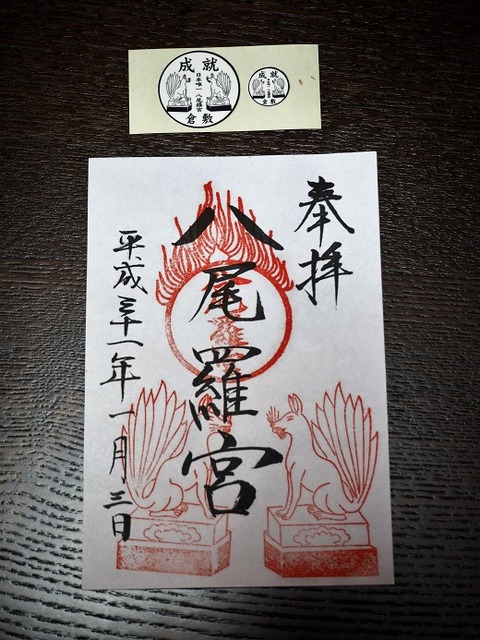 成就
日本唯一 八尾羅宮
倉敷
成就
倉敷
奉拝
八尾羅宮
平成三十一年一月三日